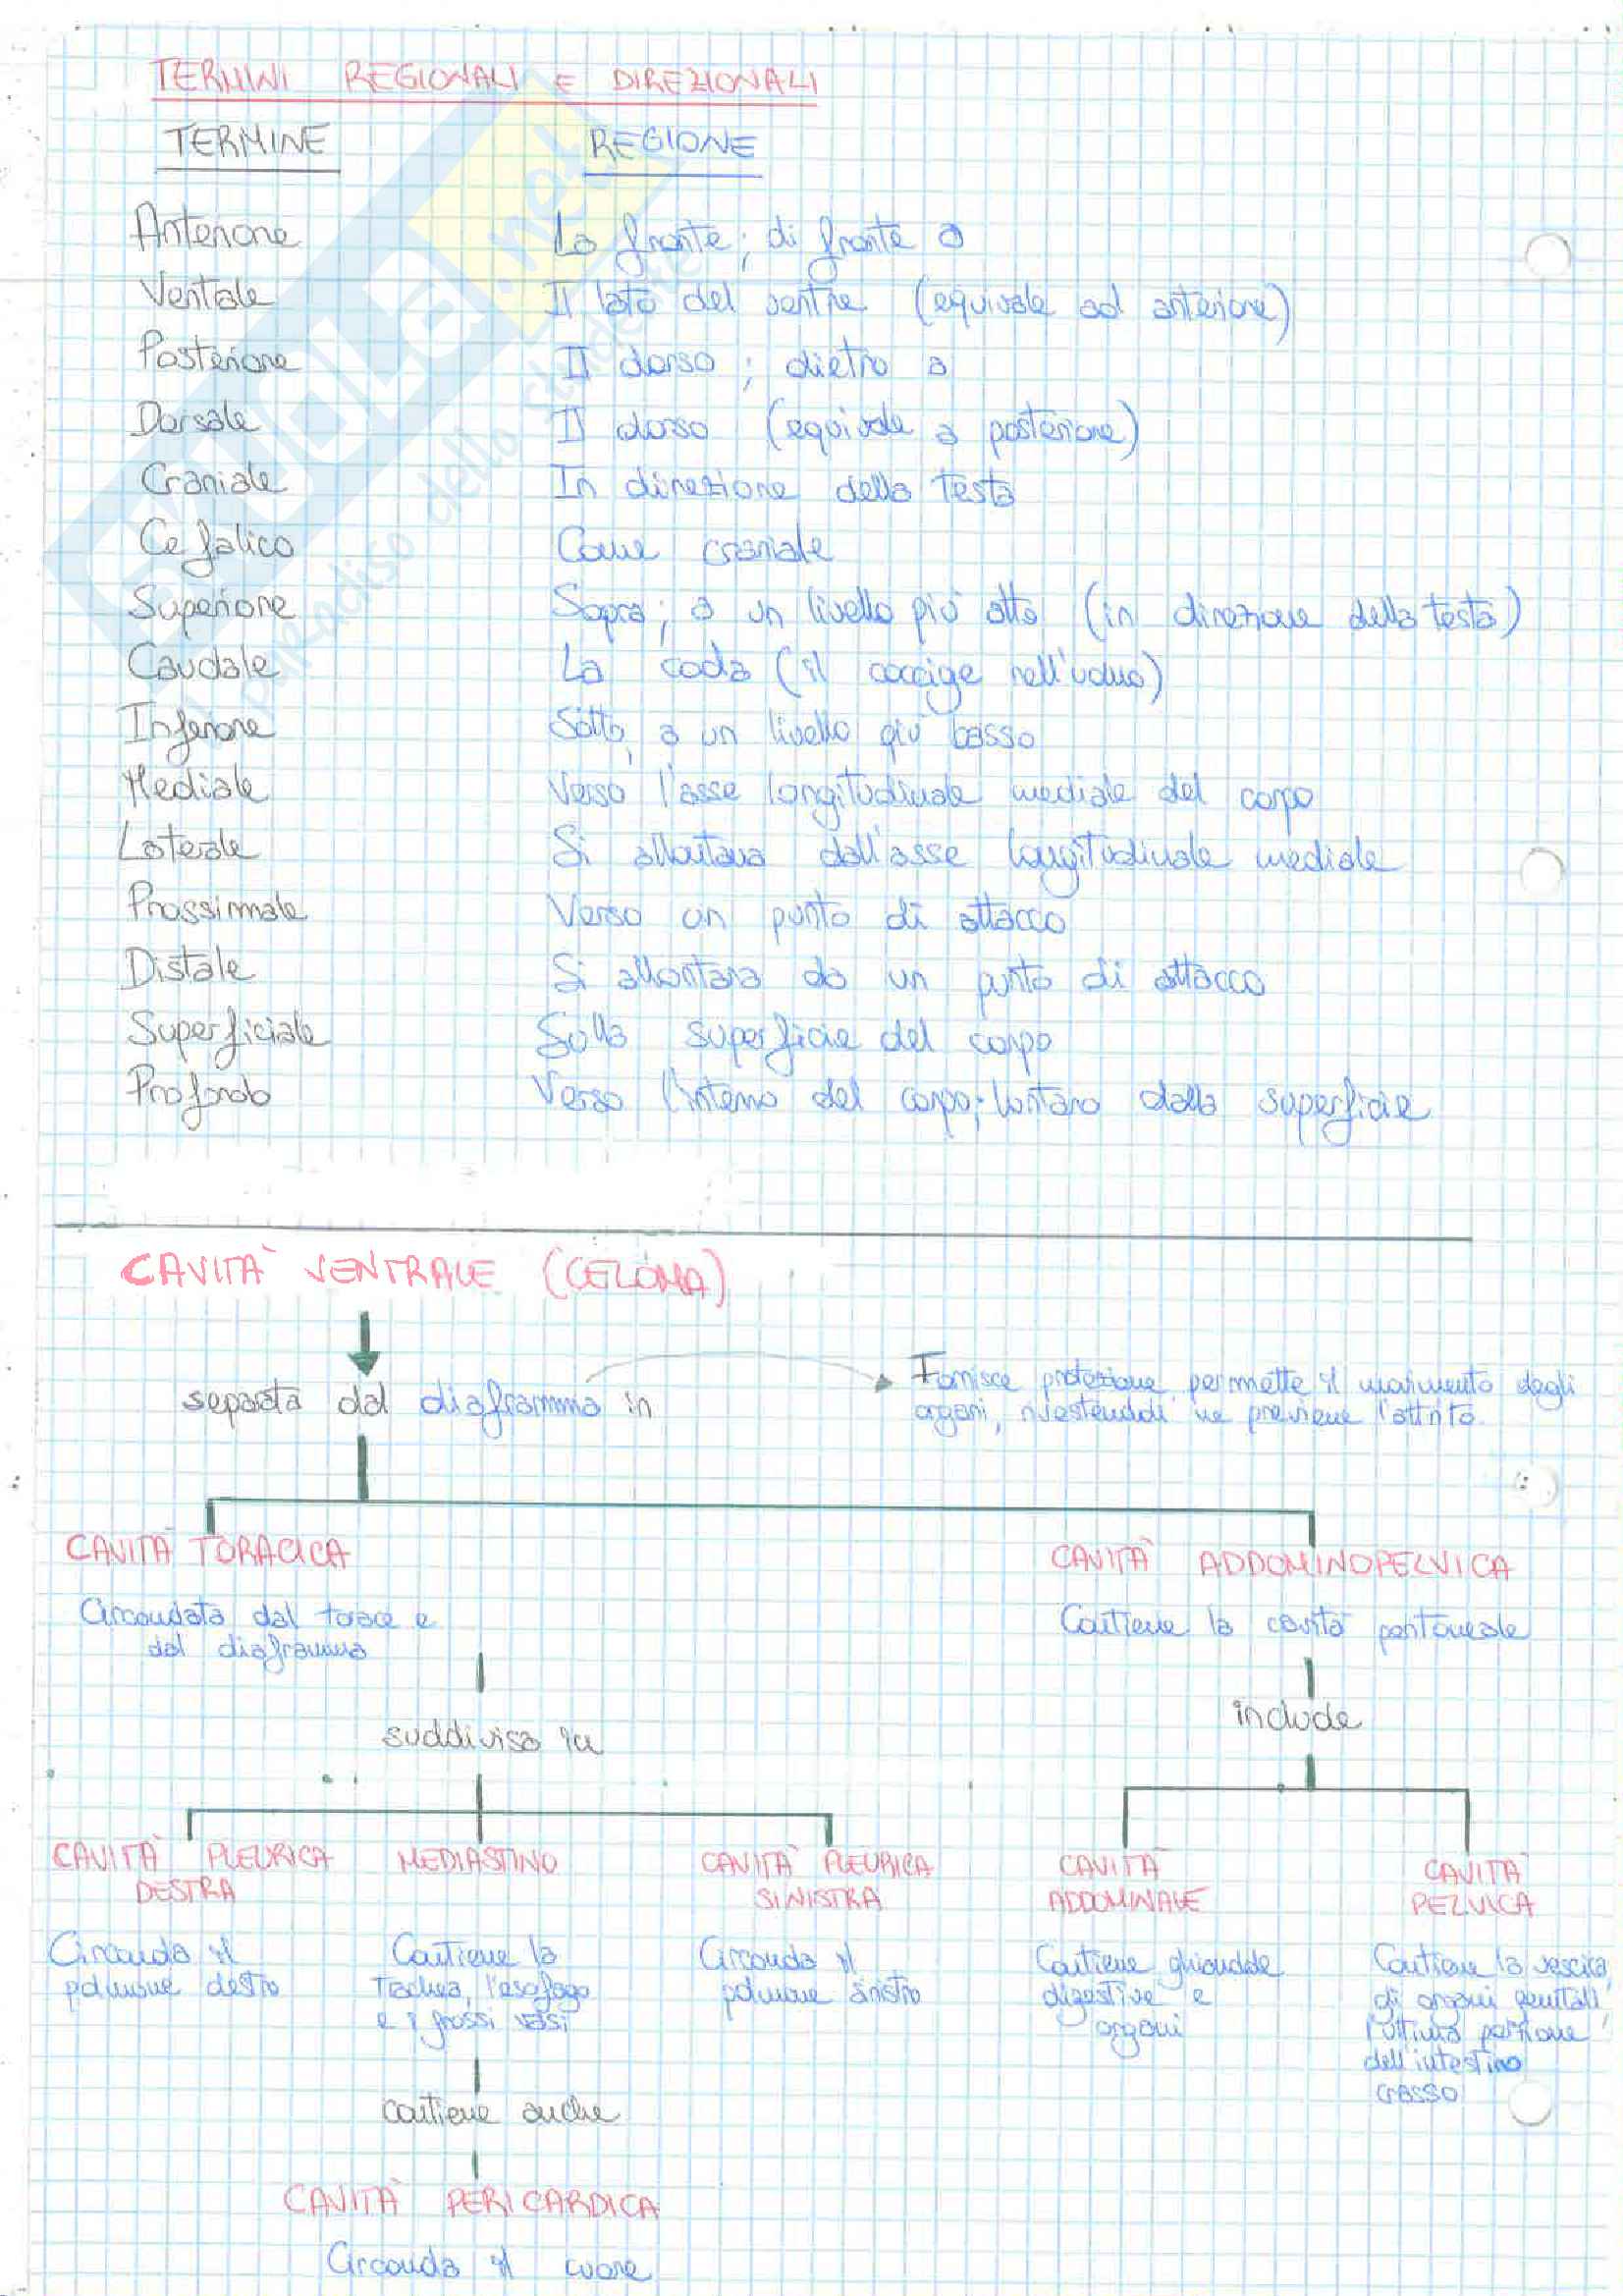 TERMINI REGIONALI E DIREZIONALI
TERMINE REGIONE
Anteriore La fronte; di fronte a
Ventale Il lato del ventre (equivale ad anteriore)
Posteriore Il dorso; dietro a
Dorsale Il dorso (equivale a posteriore)
Craniale In direzione della testa
Cefalico Come craniale
Superiore Sopra; a un livello più alto (in direzione della testa)
Caudale La coda (il coccige nell'uomo)
Inferiore Sotto, a un livello più basso
Mediale Verso l'asse longitudinale mediale del corpo
Laterale Si allontana dall'asse longitudinale mediale
Prossimale Verso un punto di attacco
Distale Si allontana da un punto di attacco
Superficiale Sulla superficie del corpo
Profondo Verso l'interno del corpo; lontano dalla superficie
CAVITÀ VENTRALE (CELOMA)
separata dal diaframma in
Fornisce protezione permette il movimento degli
organi, rivestendoli ne previene l'attrito.
CAVITÀ TORACICA CAVITÀ ADDOMINOPELVICA
Circondata dal torace e
dal diaframma
Contiene la cavità peritoneale
suddivisa in
include
CAVITÀ PLEURICA
DESTRA
MEDIASTINO
CAVITÀ PLEURICA
SINISTRA
CAVITÀ
ADDOMINALE
CAVITÀ
PELVICA
Circonda il
polmone destro
Contiene la
trachea, l'esofago
e i grossi vasi
Circonda il
polmone sinistro
Contiene ghiandole
digestive e
organi
Contiene la vescica,
gli organi genitali,
l'ultima porzione
dell'intestino
crasso
contiene anche
CAVITÀ PERICARDICA
Circonda il cuore